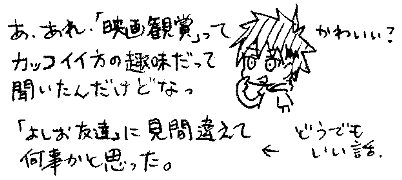 あ、あれ、「映画観賞」って
カッコイイ方の趣味だって
聞いたんだけどなっ
かわいい?
「よしお友達」に見間違えて
何事かと思った。
← どうでも
いい話.